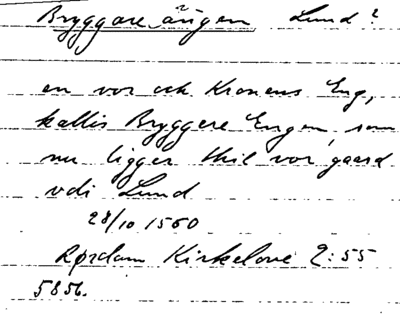 Bryggareängen Lund?
en vor och Kronens Eng,
kallis Bryggere Engen, som
nu ligger thil vor gaard
vdi Lund
28/10 1560
Rørdam Kirkelove 2:55
5856.